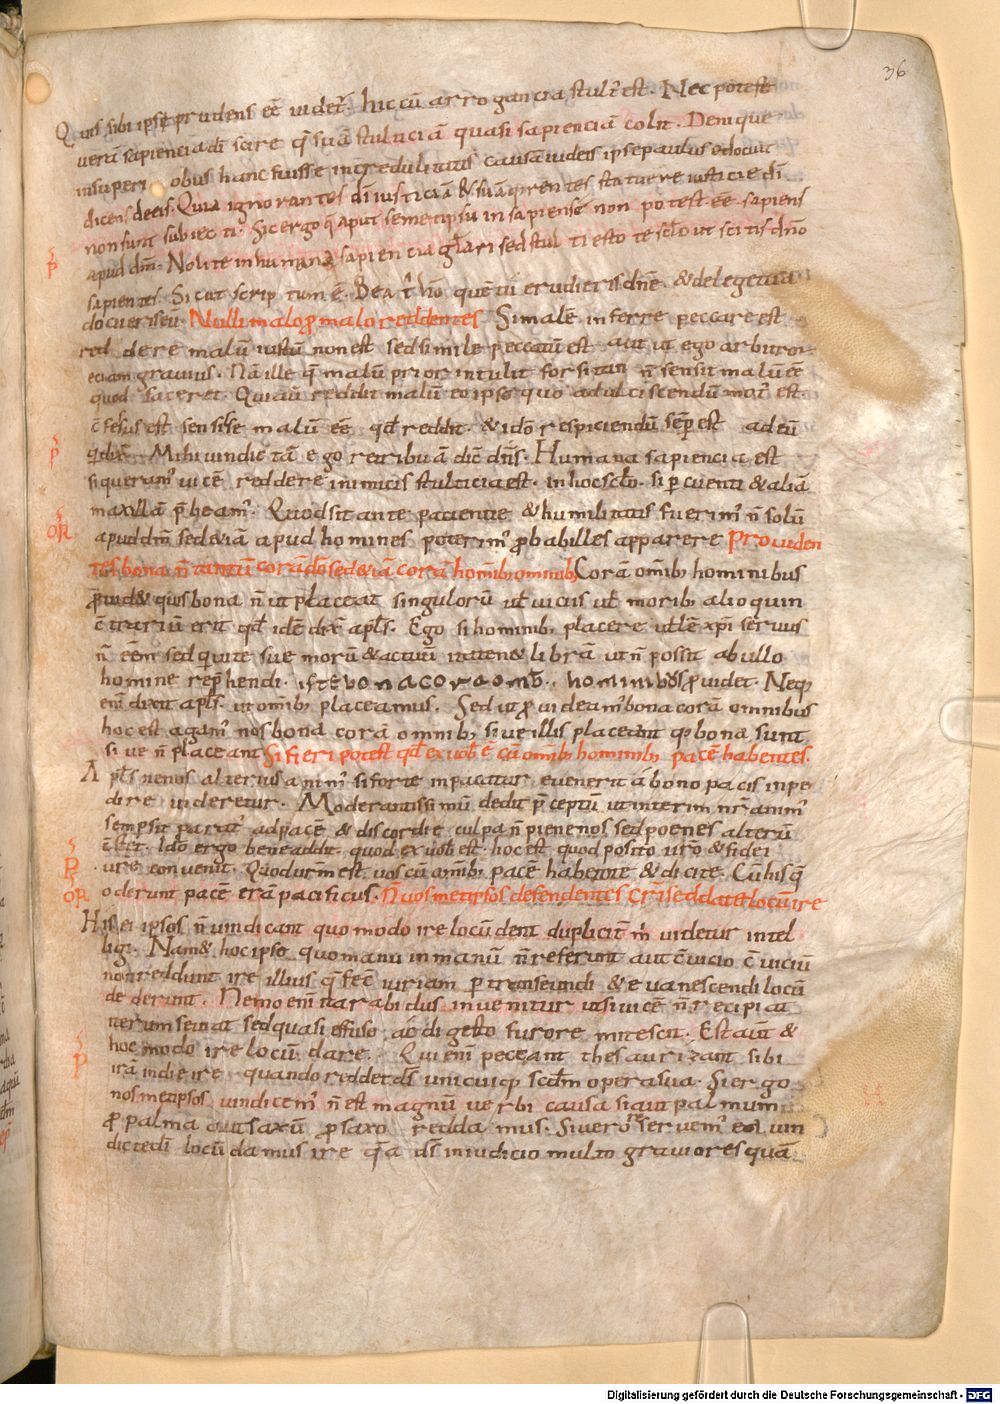 36
Quis sibi ipse prudens eē uidet͛. hic cū arrogancia stult͛ est. Nec potest
uerā sapienciā dī scire q̄ suā stulticiā quasi sapienciā colit. Denique
insuperi obus hanc fuisse incredulitatis causā iudeis ipse paulus edocuit
dicens de eis. Quia ignorantes dī iusticiā & suā q̄rentes statuere iusticie dī
non sunt subiecti. Sic ergo q̄ aput semetipsū insapiens ē non potest eē sapiens
apud dm̄. Nolite in humana sapiencia gl̄ari sed stulti estote sc̄lo ut scitis dn̄o
sapientes. Sicut scriptum ē. Beat͛ hō quē tu erudieris dn̄e. & de lege tua
docueris eū. Nulli malo ꝓ malo reddentes Si malū inferre peccare est
reddere malū iustū non est sed simile peccatū est aut ut ego arbitror
eciam grauius. Nā ille q̄ malū prior intulit forsitan n̄ sensit malū eē
quod faceret. Qui aū reddit malū eo ipso quo ad ulciscendū mot͛ est.
c̄fessus est sensisse malū eē qd̄ reddit. & idō respiciendū sēp est ad eū
qi dix̄. Mihi uindictā ego retribuā dic̄ dn̄s. Humana sapiencia est
si queram͛ uicē reddere inimicis stulticia est. in hoc sc̄lo. si ꝑcucienti & aliā
maxillā p̄beam͛. Quod sit ante paciencie & humilitatis fuerim͛ n̄ solū
apud dm̄ sed & iā apud homines poterim͛ ꝓbabilles apparere Prouiden
tes bona n̄ tantū corā dō sed & iā corā hominib; omnib; Corā omīb; hominibus
ꝓuid& q̄is bona n̄ ut placeat singulorū ut̄ uiciis ut̄ morib; alioquin
c̄trariū erit qd̄ idē dix̄ apl̄s. Ego si hominib; placere uellē xp̄i seruus
n̄ eēm sed quite sue morū & actuū ita tene& librā ut n̄ possit ab ullo
homine rep̄hendi. iste bona coram omb. hominibus ꝓuidet. Neq;
enī dixit apl̄s. ut omīb; placeamus. Sed ut ꝓuideam͛ bona corā omnibus
hoc est agam͛ nos bona corā omnib; siue illis placeant q̄ bona sunt
siue n̄ placeant Si fieri potest qd̄ ex uob̄ ē cū omīb; hominib; pacē habentes.
Apl̄s ne nos alterius anim͛ si forte inpacatur euenerit a bono pacis inpe
dire uideretur. Moderantissimū dedit p̄ceptū ut interim nr̄ anim͛
semp sit parat͛ ad pacē & discordie culpa n̄ pene nos sed poenes alterū
c̄stet. Idō ergo bene addit. quod ex uob̄ est. hoc est quod posito ur̄o & fidei
ur̄e conuenit. Quod ur̄m est. uos cū omīb; pacē habente & dicite. Cū his q̄
oderunt pacē erā pacificus. N̄ uos metipsos defendentes cr̄i sed date locū ire
Hii se ipsos n̄ uindicant quomodo ire locū dent dupliciter m̄ uidetur intel
ligi. Nam & hoc ipso quo manu in manū n̄ referunt aut c̄uicio c̄uiciū
non reddunt ire illius q̄ fec̄ iniriam ꝑ transeundi & euanescendi locū
dederunt. Nemo enī ita rabidus inuenitur ut si uicē n̄ recipiat
iterum seuiat sed quasi effuso ac digesto furore mitescit. Est aūt &
hoc modo ire locū dare. Qui enī peccant thesaurizant sibi
irā in die ire quando reddet ds̄ unicuiq; scd̄m opera sua. Si ergo
nos metipsos uindicem͛ n̄ est magnū uerbi causa si aut palmum
ꝓ palma aut saxū ꝓ saxo reddamus. Si uero reseruem͛ eā uin
dictedī locū damus ire q̄a ds̄ in iudicio multo grauiores quā
Digitalisierung gefördert durch die Deutsche Forschungsgemeinschaft - DFG